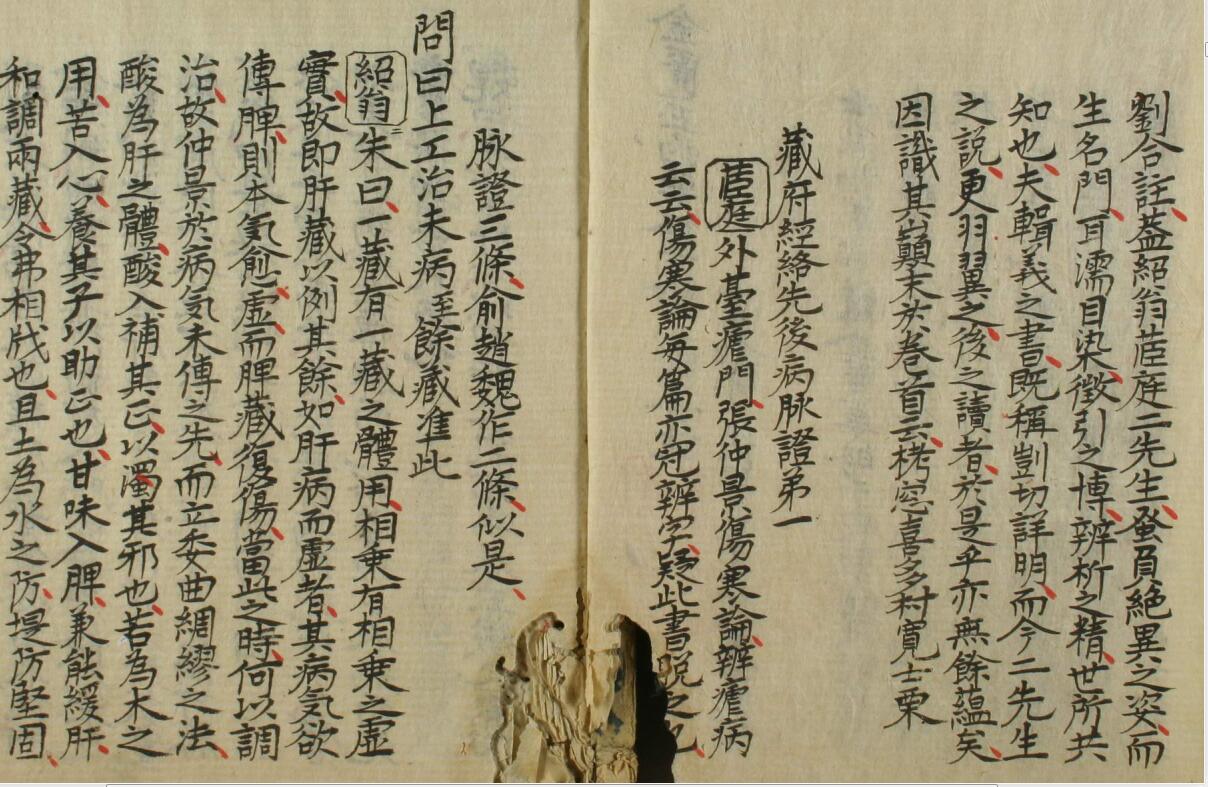 劉合註蓋紹翁茝庭二先生蚤負絶異之姿而
生名門耳濡目染徵引之博辨析之精世所共
知也夫輯義之書既稱剴切詳明而今二先生
之説更羽翼之後之讀者於是乎亦無餘蘊矣
因識其巔末於卷首云栲窓喜多村寛士栗
藏府經絡先後病脉證弟一
茝庭外臺瘧門張仲景傷寒論辨瘧病
云云傷寒論毎篇亦冠辨字疑此書脱之
脉證三條俞趙魏作二條似是
問曰上工治未病至餘藏准此
紹翁朱曰一藏有一藏之體用相乗有相乗之虚
實故即肝藏以例其餘如肝病而虚者其病気欲
傳脾則本気愈虚而脾藏復傷當此之時何以調
治故仲景於病気未傳之先而立委曲綢繆之法
酸為肝之體酸入補其正以濁其邪也若為木之
用苦入心養其子以助正也甘味入脾兼能緩肝
和調兩藏令弗相戕也且土為水之防堤防堅固